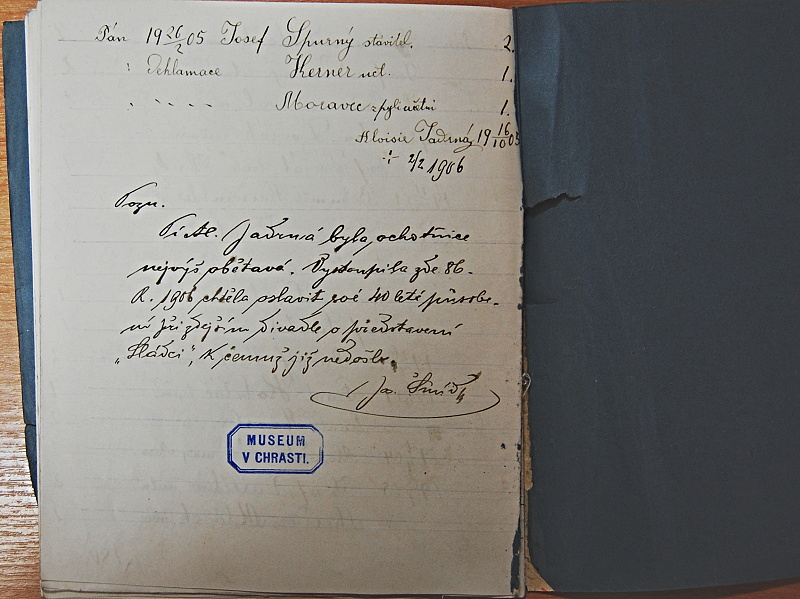 Pán 19 26/2 05 Josef Spurný stavitel. 2.
: Deklamace Kerner uct. 1.
. . . . . Moravec 1.
Aloisie Jadrná 19 16/10 05
÷ 2/2 1906
Pozn.
Pí Al. Jadrná byla ochotnice
nejvýš obětavá. Vystoupila zde 86.
R. 1906 chtěla oslavit své 40 leté působe-
ní při zdejším divadle o představení
„Sládci“, k čemuž již nedošlo.
Jos. Šmíd
MUSEUM
V CHRASTI.